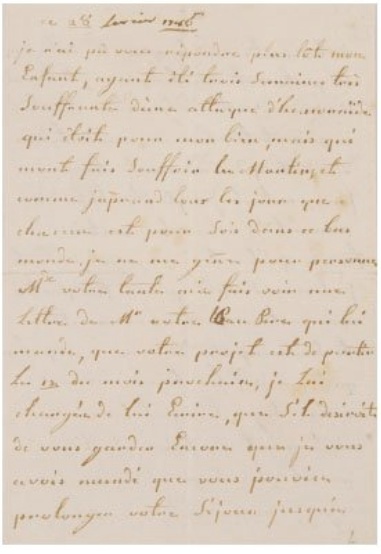 ce 28 fevrier 1786
je n'ai pû vous repondre plus tôt mon
Enfant, ayant été trois Semaines très
Souffrante d'une attaque d'hemoroïde
qui étoit pour mon bien, mais qui
m'ont fais Souffrir le Martire, et
comme j'aprend tous les jour que
chacun est pour Soi dans ce bas
monde, je ne me gêne pour personne
Mde votre tante m'a fais voir une
lettre de Mr votre Beau Pere qui lui
mande, que votre projet est de partir
le 12 du mois prochain, je l'ai
chargée de lui Ecrire, que S'il desiroit
de vous garder Encore que je vous
avois mandé que vous pouviez
prolonger votre Séjour jusqu'en